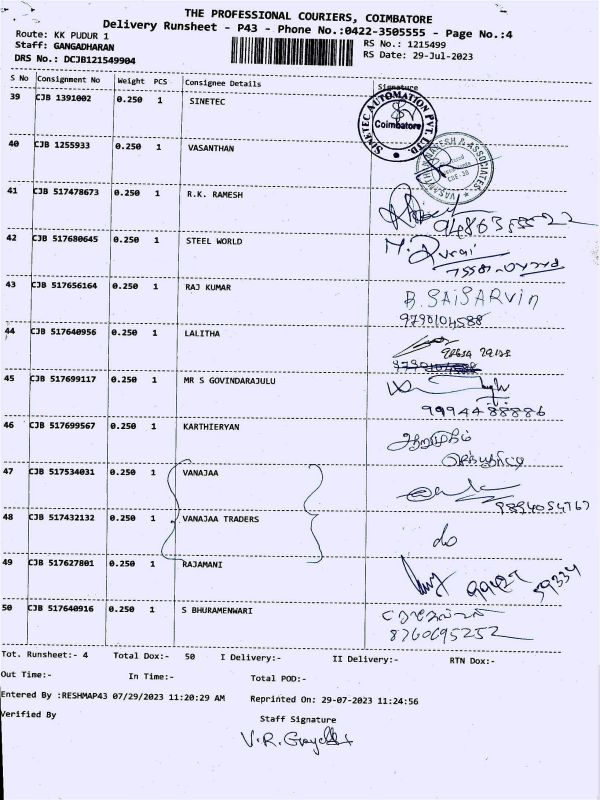 THE PROFESSIONAL COURIERS, COIMBATORE
Delivery Runsheet - P43 - Phone No.:0422-3505555 - Page No.:4
Route: KK PUDUR 1
Staff: GANGADHARAN
RS No.: 1215499
DRS No.: DCJB121549904
RS Date: 29-Jul-2023
S No Consignment No Weight PCS Consignee Details Signature
39 CJB 1391002 0.250 1 SINETEC
SINETEC AUTOMATION PVT. LTD. Coimbatore
40 CJB 1255933 0.250 1 VASANTHAN
& ASSOCIATES
41 CJB 517478673 0.250 1 R.K. RAMESH
42 CJB 517680645 0.250 1 STEEL WORLD
M. Durai
43 CJB 517656164 0.250 1 RAJ KUMAR B. SAISARVIN
9790104588
44 CJB 517640956 0.250 1 LALITHA
45 CJB 517699117 0.250 1 MR S GOVINDARAJULU
9994488886
46 CJB 517699567 0.250 1 KARTHIERYAN ஆறுமுகம்
47 CJB 517534031 0.250 1 VANAJAA
9894054767
48 CJB 517432132 0.250 1 VANAJAA TRADERS do
49 CJB 517627801 0.250 1 RAJAMANI
59334
50 CJB 517640916 0.250 1 S BHURAMENWARI
8760695252
Tot. Runsheet:- 4 Total Dox:- 50 I Delivery:- II Delivery:- RTN Dox:-
Out Time:- In Time:- Total POD:-
Entered By :RESHMAP43 07/29/2023 11:20:29 AM Reprinted On: 29-07-2023 11:24:56
Verified By Staff Signature